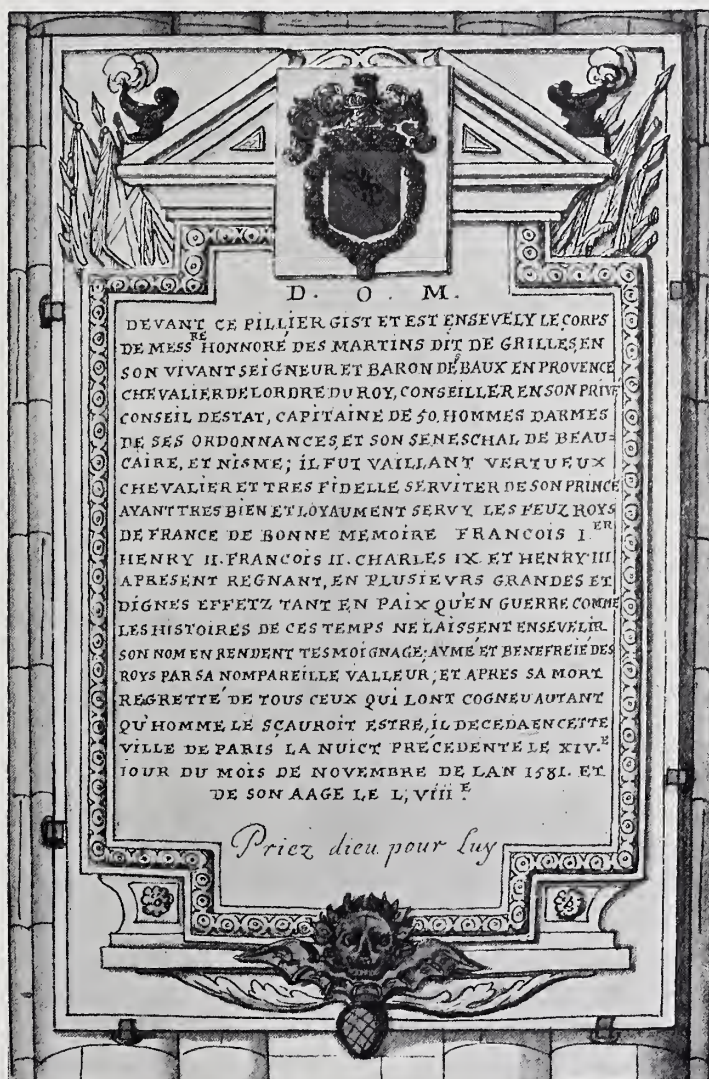 D. O. M.
DEVANT CE PILLIER GIST ET EST ENSEVELY LE CORPS
DE MESSRE HONNORÉ DES MARTINS DIT DE GRILLES, EN
SON VIVANT SEIGNEUR ET BARON DES BAUX EN PROVENCE
CHEVALIER DE LORDRE DU ROY, CONSEILLER EN SON PRIVÉ
CONSEIL DESTAT, CAPITAINE DE 50. HOMMES DARMES
DE SES ORDONNANCES, ET SON SENESCHAL DE BEAU=
CAIRE, ET NISME; IL FUT VAILLANT VERTUEUX
CHEVALIER ET TRES FIDELLE SERVITER DE SON PRINCE
AYANT TRES BIEN ET LOYAUMENT SERVY, LES FEUZ ROYS
DE FRANCE DE BONNE MEMOIRE FRANCOIS I.ER
HENRY II. FRANCOIS II. CHARLES IX. ET HENRY III.
APRESENT REGNANT, EN PLUSIEVRS GRANDES ET
DIGNES EFFETZ TANT EN PAIX QU'EN GUERRE COMME
LES HISTOIRES DE CES TEMPS NE LAISSENT ENSEVELIR
SON NOM EN RENDENT TESMOIGNAGE; AYMÉ ET BENEFREIÉ DES
ROYS PAR SA NOMPAREILLE VALLEUR; ET APRES SA MORT
REGRETTÉ DE TOUS CEUX QUI LONT COGNEU AUTANT
QU'HOMME LE SCAUROIT ESTRE, IL DECEDA EN CETTE
VILLE DE PARIS LA NUICT PRÉCEDENTE LE XIV.E
IOUR DU MOIS DE NOVEMBRE DE LAN 1581. ET
DE SON AAGE LE L,VIII.E
Priez dieu pour Luy